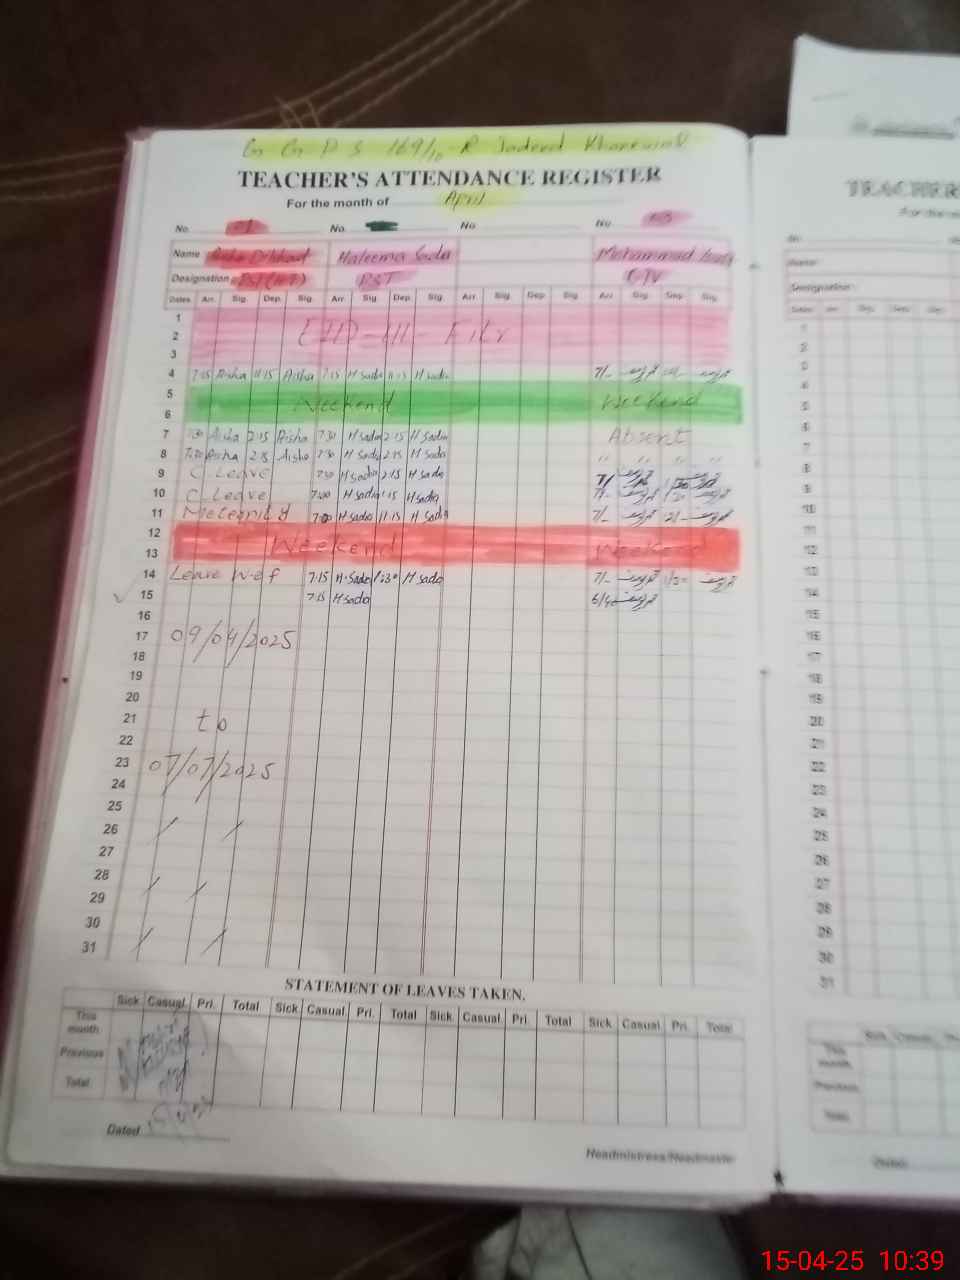 G G P S 169/10-R Jadeed Khanewal
TEACHER'S ATTENDANCE REGISTER
For the month of April
No. 01 No. No No 03
Name Aisha Dilshad Haleema Sadia Mohammad
Designation PST PST
Dates Arr. Sig. Dep. Sig. Arr. Sig. Dep. Sig. Arr. Sig. Dep. Sig. Arr. Sig. Dep. Sig.
1
2 EID-Ul-Fitr
3
4 7:15 Aisha 11:15 Aisha 7:15 H Sadia 11:15 H Sadia 7/-
5 Weekend Weekend
6
7 7:30 Aisha 2:15 Aisha 7:30 H Sadia 2:15 H Sadia Absent
8 7:30 Aisha 2:15 Aisha 7:30 H Sadia 2:15 H Sadia " " " "
9 C. Leave 7:30 H Sadia 2:15 H Sadia 7/-
10 C. Leave 7:00 H Sadia 1:15 H Sadia 7/-
11 Meternity 7:00 H Sadia 11:15 H Sadia 7/- 12/-
12 Weekend Weekend
13
14 Leave w.e.f 7:15 H.Sadia 1:30 H Sadia 7/- 1/30
15 7:15 H Sadia
16
17 09/04/2025
18
19
20
21 to
22
23 07/07/2025
24
25
26
27
28
29
30
31
STATEMENT OF LEAVES TAKEN.
Sick Casual Pri. Total Sick Casual Pri. Total Sick Casual Pri. Total Sick Casual Pri. Total
This month
Previous
Total
Dated
Headmistress/Headmaster
TEACHER
For the
No.
Name
Designation
Dates Arr. Sig. Dep. Sig.
1
2
3
4
5
6
7
8
9
10
11
12
13
14
15
16
17
18
19
20
21
22
23
24
25
26
27
28
29
30
31
Sick Casual
This month
Previous
Total
Dated
15-04-25 10:39